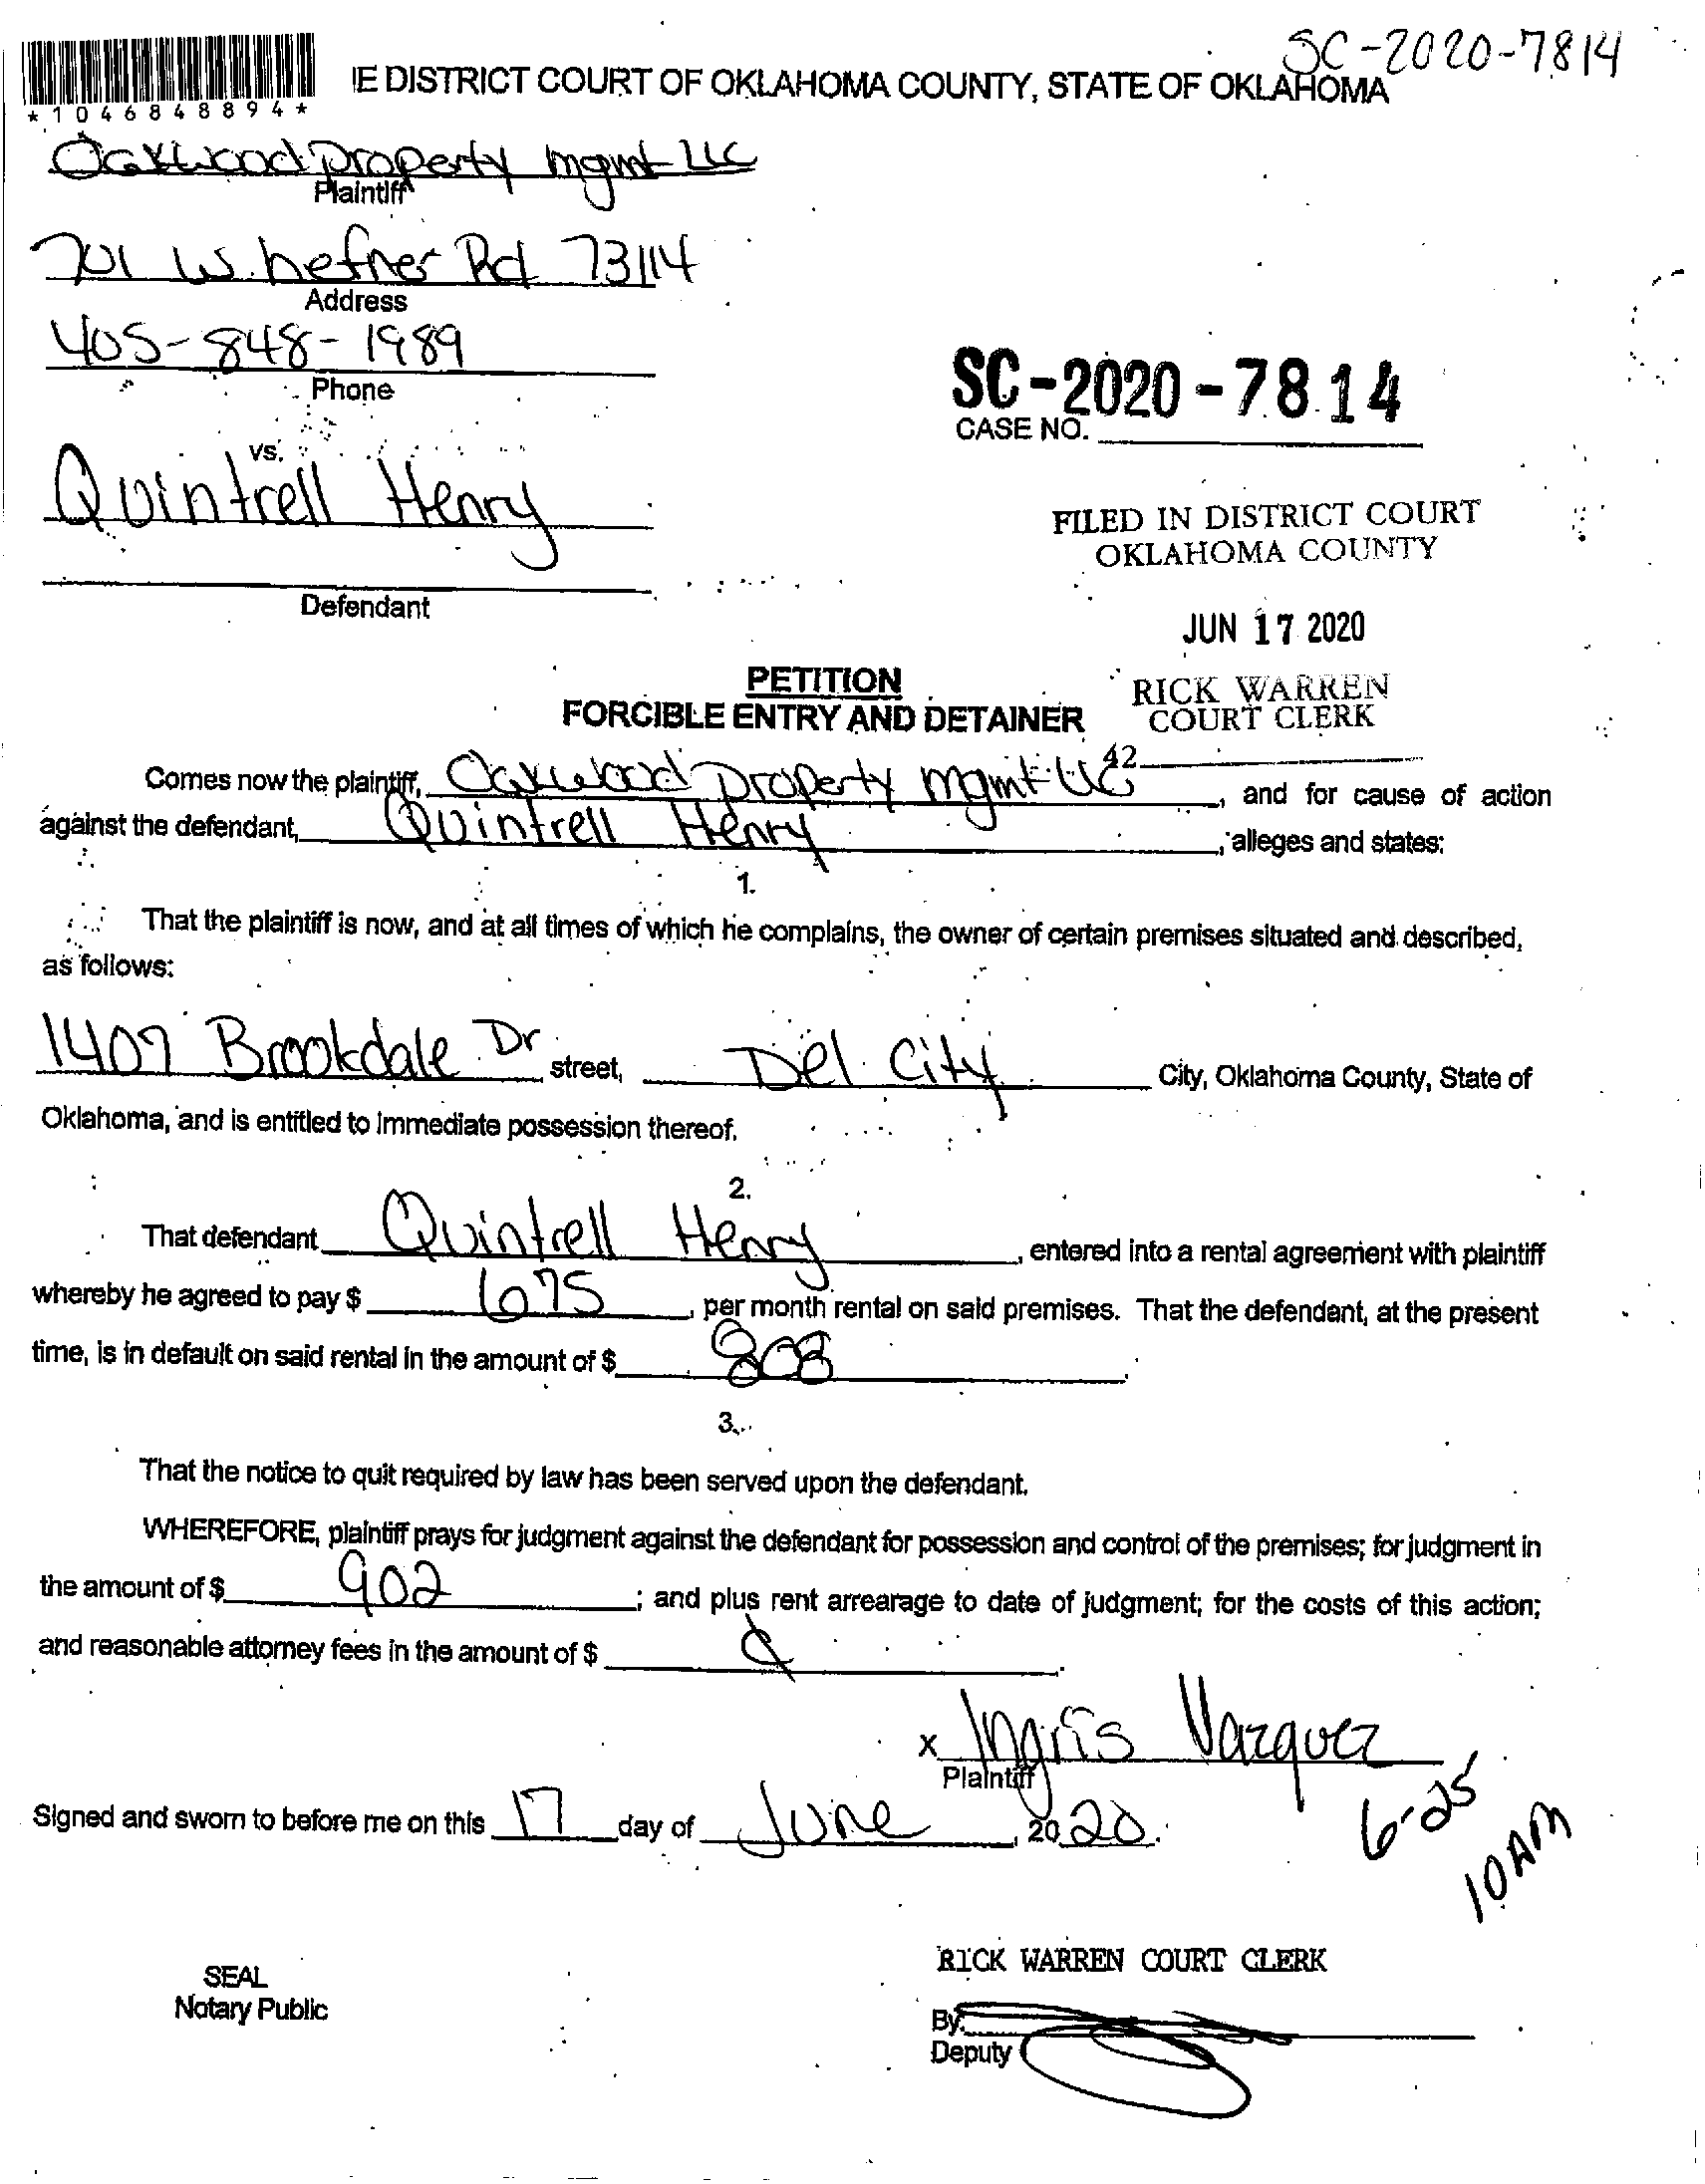 SC-2020-7814
IE DISTRICT COURT OF OKLAHOMA COUNTY, STATE OF OKLAHOMA
*1046848894*
Oakwood Property mgmt LLC
Plaintiff
701 W. hefner Rd 73114
Address
405-848-1989
Phone
SC-2020-7814
CASE NO.
vs.
Quintrell Henry
FILED IN DISTRICT COURT
OKLAHOMA COUNTY
Defendant
JUN 17 2020
PETITION
RICK WARREN
FORCIBLE ENTRY AND DETAINER
COURT CLERK
42
Comes now the plaintiff, Oakwood Property mgmt LLC, and for cause of action
against the defendant, Quintrell Henry, alleges and states:
1.
That the plaintiff is now, and at all times of which he complains, the owner of certain premises situated and described,
as follows:
1407 Brookdale Dr street, Del City City, Oklahoma County, State of
Oklahoma, and is entitled to immediate possession thereof.
2.
That defendant Quintrell Henry, entered into a rental agreement with plaintiff
whereby he agreed to pay $ 675, per month rental on said premises. That the defendant, at the present
time, is in default on said rental in the amount of $ 808.
3.
That the notice to quit required by law has been served upon the defendant.
WHEREFORE, plaintiff prays for judgment against the defendant for possession and control of the premises; for judgment in
the amount of $ 902; and plus rent arrearage to date of judgment; for the costs of this action;
and reasonable attorney fees in the amount of $
x Ingris Vazquez
Plaintiff
Signed and sworn to before me on this 17 day of June, 2020.
6-25
10 AM
RICK WARREN COURT CLERK
SEAL
Notary Public
By:
Deputy